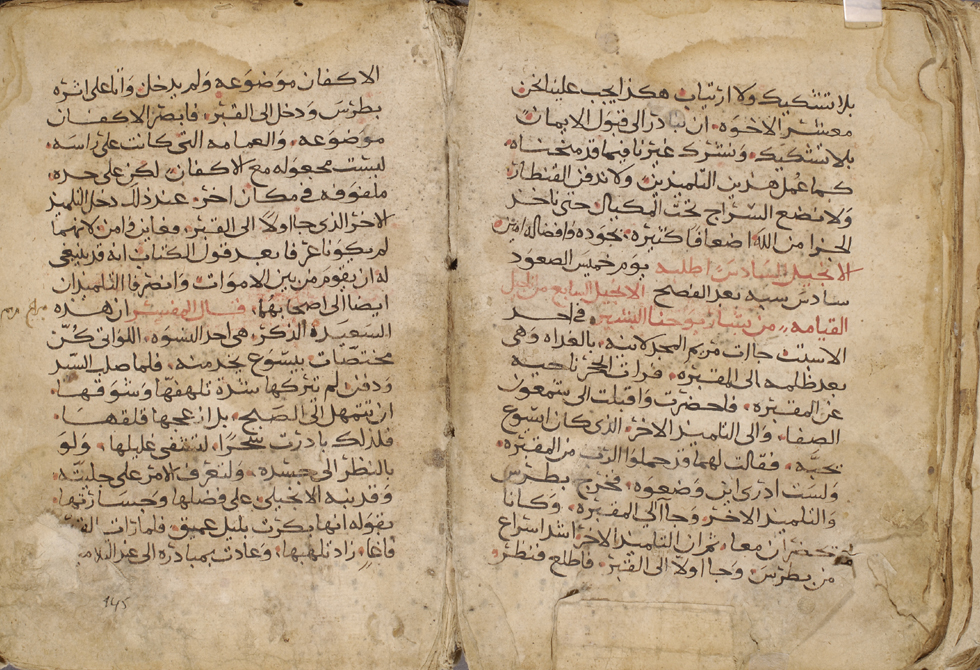 بلا تشكيك ولا ارتياب هكذا يجب علينا نحن
معشر الاخوه ان نبادر الى قبول الايمان
بلا تشكيك ونشرك غيرنا فيما قد منحناه
كما عمل هذين التلميذين ولا ندفن القنطار
ولا نضع السراج تحت المكيال حتى ناخذ
الجزا من الله اضعافا كثيره بجوده وافضاله امين
الانجيل السادس اطلبه يوم خميس الصعود
سادس سبه بعد الفصح الانجيل السابع من اناجيل
القيامه من بشارة يوحنا البشير في احد
الاسبت جاات مريم المجدلانيه بالغداه وهى
بعد ظلمه الى المقبره فرات الحجر ناحيه
عن المقبره فاحضرت واقبلت الى شمعون
الصفا والى التلميذ الاخر الذى كان ايسوع
يحبه فقالت لهما قد حملوا الرب من المقبره
ولست ادرى اين وضعوه فخرج بطرس
والتلميذ الاخر وجاا الى المقبره وكانا
يحضران معا ثم ان التلميذ الاخر اشد اسراع
من بطرس وجاا اولا الى القبر فاطلع فنظر
الاكفان موضوعه ولم يدخل واتا على اثره
بطرس ودخل الى القبر فابصر الاكفان
موضوعه والعمامه التى كانت على راسه
ليست مجعوله مع الاكفان لكن على حده
ملفوفه في مكان اخر عند ذلك دخل التلميذ
الاخر الذى جا اولا الى القبر فعاين فامن لانهما
لم يكونا عرفا بعد قول الكتاب انه قد ينبغى
له ان يقوم من بين الاموات وانصرفا التلميذان
ايضا الى اصحابهما قال المفسر ان هذه
السعيدة الذكر هى احد النسوه اللواتى كن
مختصات بيسوع بخدمته فلما صلب السيد
ودفن لم تتركها شدة تلهفها وشوقها
ان تتمهل الى الصبح بل ازعجها قلقها
فلذلك بادرت سحرا لتشفى غليلها ولو
بالنظر الى جسده ولتعرف الامر على جليته
وقد نبه الانجيلى على فضلها وجسارتها
بقوله انها بكرت بليل عميق فلما رات القبر
فاغا زاد تلهبها وعادت بمبادره الى عند التلاميذ
145